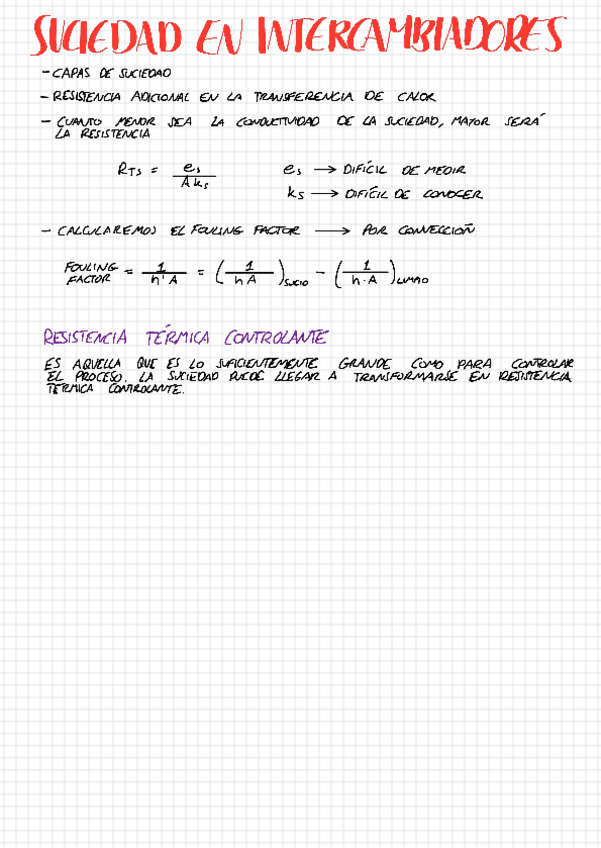 SUCIEDAD EN INTERCAMBIADORES
- CAPAS DE SUCIEDAD
- RESISTENCIA ADICIONAL EN LA TRANSFERENCIA DE CALOR
- CUANTO MENOR SEA LA CONDUCTIVIDAD DE LA SUCIEDAD, MAYOR SERÁ
LA RESISTENCIA
RTS = es / A ks
es → DIFÍCIL DE MEDIR
ks → DIFÍCIL DE CONOCER
- CALCULAREMOS EL FOULING FACTOR → POR CONVECCIÓN
FOULING FACTOR = 1 / h' A = (1 / h A)SUCIO - (1 / h · A)LIMPIO
RESISTENCIA TÉRMICA CONTROLANTE
ES AQUELLA QUE ES LO SUFICIENTEMENTE GRANDE COMO PARA CONTROLAR
EL PROCESO. LA SUCIEDAD PUEDE LLEGAR A TRANSFORMARSE EN RESISTENCIA
TÉRMICA CONTROLANTE.